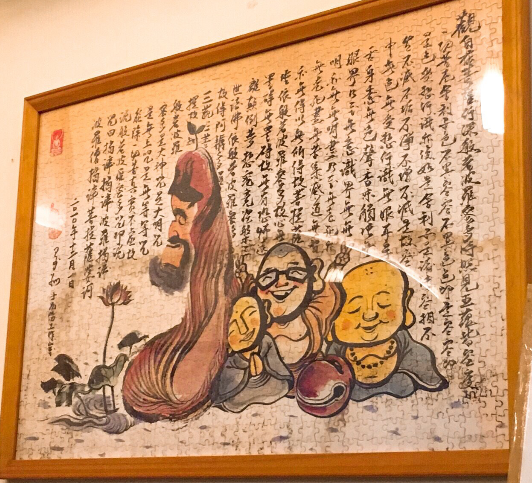 觀自在菩薩行深般若波羅蜜多時照見五蘊皆空度
一切苦厄舍利子色不異空空不異色色即是空空即
是色受想行識亦復如是舍利子是諸法空相不
生不滅不垢不淨不增不減是故空
中無色無受想行識無眼耳鼻
舌身意無色聲香味觸法無
眼界乃至無意識界無無
明亦無無明盡乃至無
老死亦無老死盡無苦集滅道無
智亦無得以無所得故菩提薩
埵依般若波羅蜜多故心無
罣礙無罣礙故無有恐怖遠
離顛倒夢想究竟涅槃三
世諸佛依般若波羅蜜多
故得阿耨
三藐三
提故
般若波羅
蜜多是大神咒是大明咒
是無上咒是無等等咒
能除一切苦真實不虛故
說般若波羅蜜多咒即說
咒曰揭諦揭諦波羅揭諦
波羅僧揭諦菩提薩婆訶
年十二月